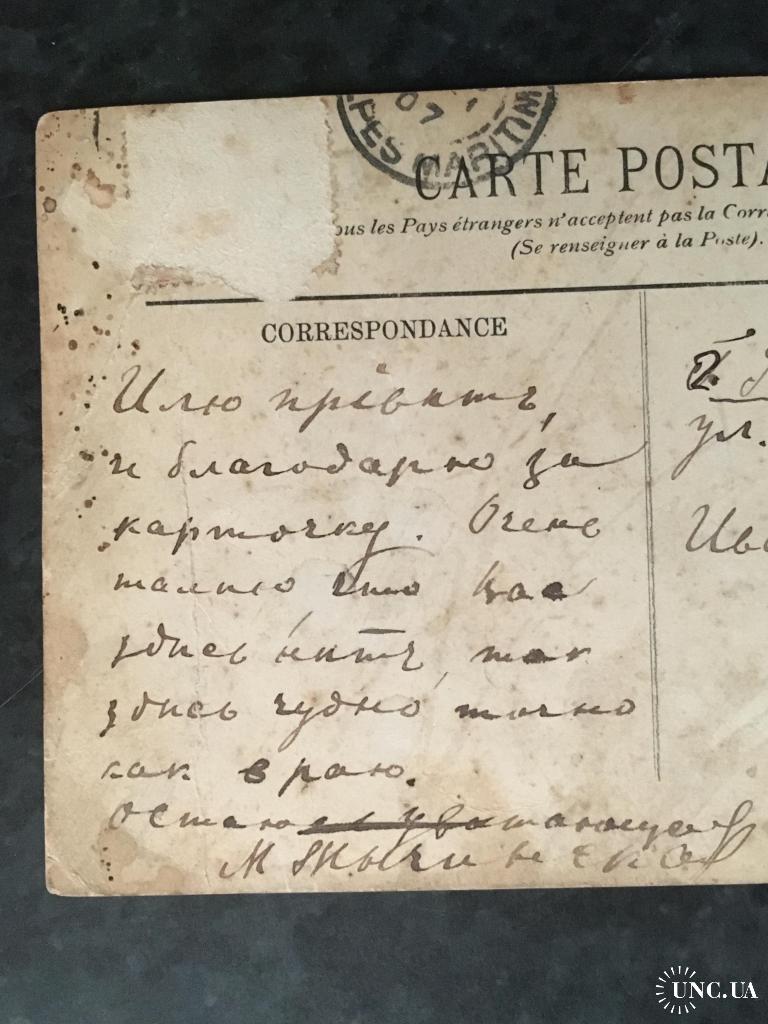 07
PES MARITIM
CARTE POSTA
ous les Pays étrangers n'acceptent pas la Corr
(Se renseigner à la Poste).
CORRESPONDANCE
Шлю привѣтъ,
и благодарю за
карточку. Очень
жалко что Вас
здѣсь нѣтъ, так
здѣсь чудно точно
как в раю.
Остаюсь уважающая
М
ул.
Ива
UNC.UA